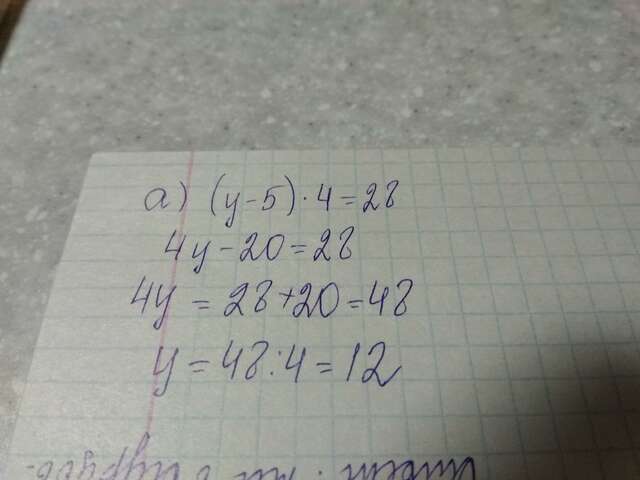 а) (y-5)·4=28
4y-20=28
4y=28+20=48
y=48:4=12